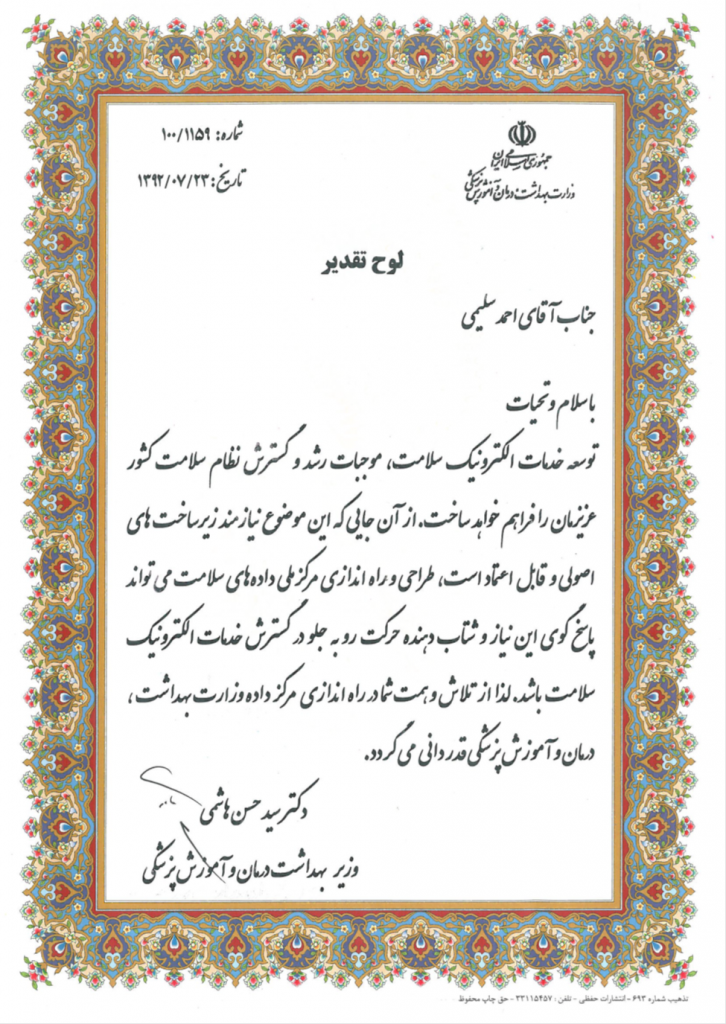 جمهوری اسلامی ایران
وزارت بهداشت درمان و آموزش پزشکی
شماره: ۱۰۰/۱۱۵۹
تاریخ: ۱۳۹۲/۰۷/۲۳
لوح تقدیر
جناب آقای احمد سلیمی
با سلام و تحیات
توسعه خدمات الکترونیک سلامت، موجبات رشد و گسترش نظام سلامت کشور
عزیزمان را فراهم خواهد ساخت. از آن جایی که این موضوع نیازمند زیرساخت های
اصولی و قابل اعتماد است، طراحی و راه اندازی مرکز ملی داده های سلامت می تواند
پاسخ گوی این نیاز و شتاب دهنده حرکت رو به جلو در گسترش خدمات الکترونیک
سلامت باشد. لذا از تلاش و همت شما در راه اندازی مرکز داده وزارت بهداشت،
درمان و آموزش پزشکی قدردانی می گردد.
دکتر سید حسن هاشمی
وزیر بهداشت درمان و آموزش پزشکی
تذهیب شماره ۶۹۳ - انتشارات حفظی - تلفن : ۳۳۱۱۵۴۵۷ - حق چاپ محفوظ